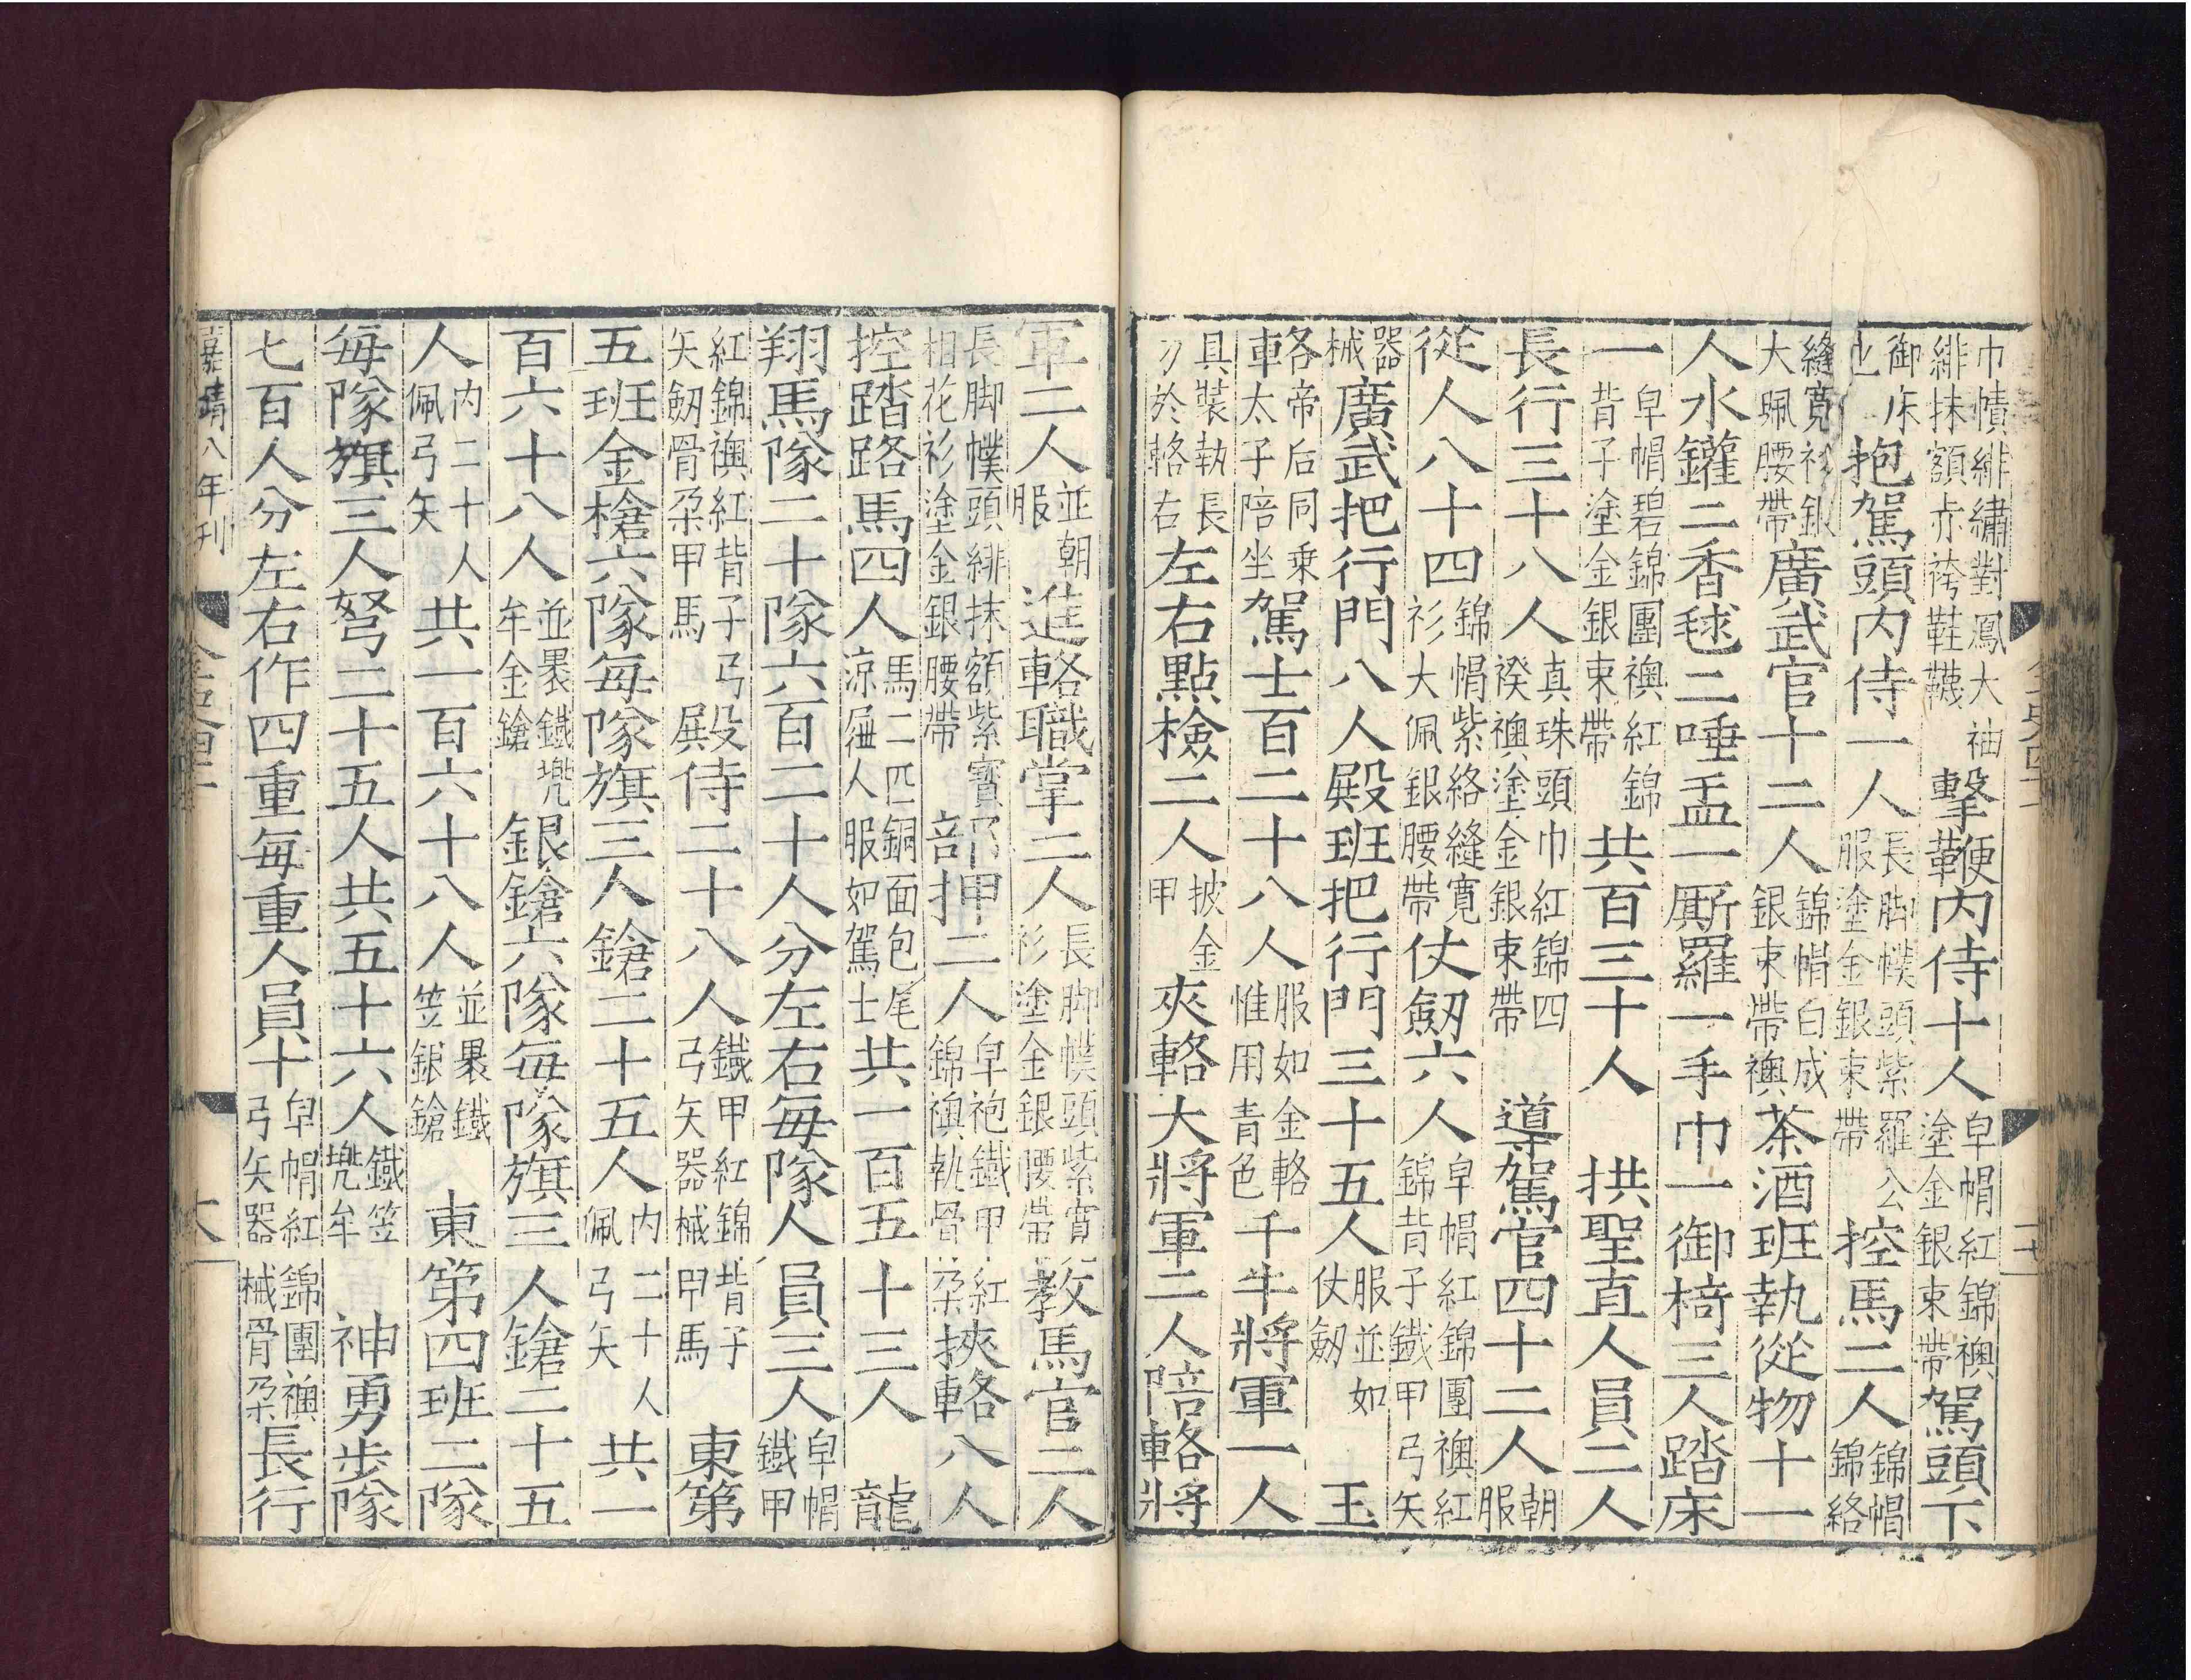 巾幘緋繡對鳳大袖緋抹額赤袴鞋韈擊鞭内侍十人皁帽紅錦襖塗金銀束帶駕頭下
御床也抱駕頭内侍一人長脚幞頭紫羅公服塗金銀束帶控馬二人錦帽錦絡
縫寛衫銀大珮腰帶廣武官十二人錦帽白成銀束帶襖茶酒班執從物十一
人水鑵二香毬二唾盂一厮羅一手巾一御椅三人踏床
一皁帽碧錦團襖紅錦背子塗金銀束帶共百三十人 拱聖直人員二人
長行三十八人真珠頭巾紅錦四䙆襖塗金銀束帶 導駕官四十二人朝服
從人八十四錦帽紫絡縫寛衫大佩銀腰帶仗劒六人皁帽紅錦團襖紅錦背子鐵甲弓矢
器械廣武把行門八人殿班把行門三十五人服並如仗劒 玉
輅帝后同乗太子陪坐駕士百二十八人服如金輅惟用青色千牛將軍一人
具裝執長刀於輅右左右點檢二人披金甲夾輅大將軍二人陪輅將
軍二人並朝服進輅職掌二人長脚幞頭紫寛衫塗金銀腰帶教馬官二人
長脚幞頭緋抹額紫寶相花衫塗金銀腰帶部押二人皁袍鐵甲紅錦襖執骨朶挾輅八人
控踏路馬四人馬二匹銅面包尾涼屜人服如駕士共一百五十三人 龍
翔馬隊二十隊六百二十人分左右每隊人員三人皁帽鐵甲
紅錦襖紅背子弓矢劒骨朶甲馬殿侍二十八人鐵甲紅錦背子弓矢器械甲馬 東第
五班金槍六隊每隊旗三人鎗二十五人内二十人佩弓矢共一
百六十八人並褁鐵兠牟金鎗 銀鎗六隊每隊旗三人鎗二十五
人内二十人佩弓矢共一百六十八人並褁鐵笠銀鎗 東第四班二隊
每隊旗三人弩二十五人共五十六人鐵笠兠牟 神勇步隊
七百人分左右作四重每重人員十皁帽紅錦團襖弓矢器械骨朶長行
嘉靖八年刊 金史四十一 十八